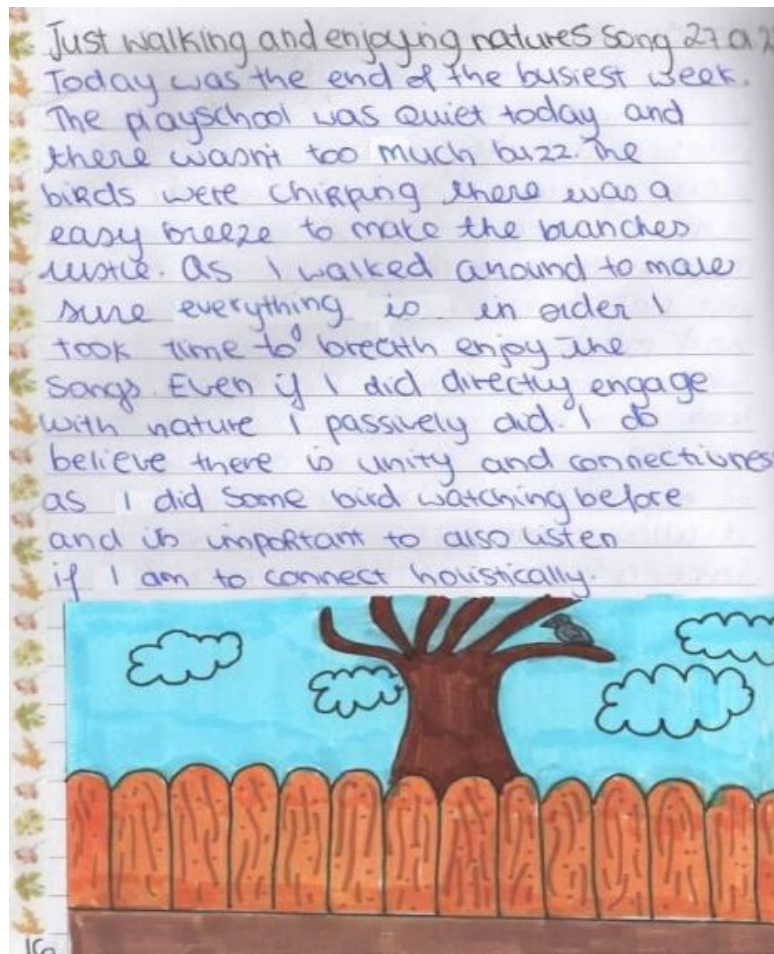 Just walking and enjoying natures song 27
Today was the end of the busiest week.
The playschool was quiet today and
there wasnt too much buzz. The
birds were chirping there was a
easy breeze to make the branches
rustle. As I walked around to make
sure everything is in order I
took time to breath enjoy the
Songs. Even if I did directly engage
with nature I passively did. I do
believe there is unity and
as I did some bird watching before
and its important to also listen
if I am to connect holistically.
16